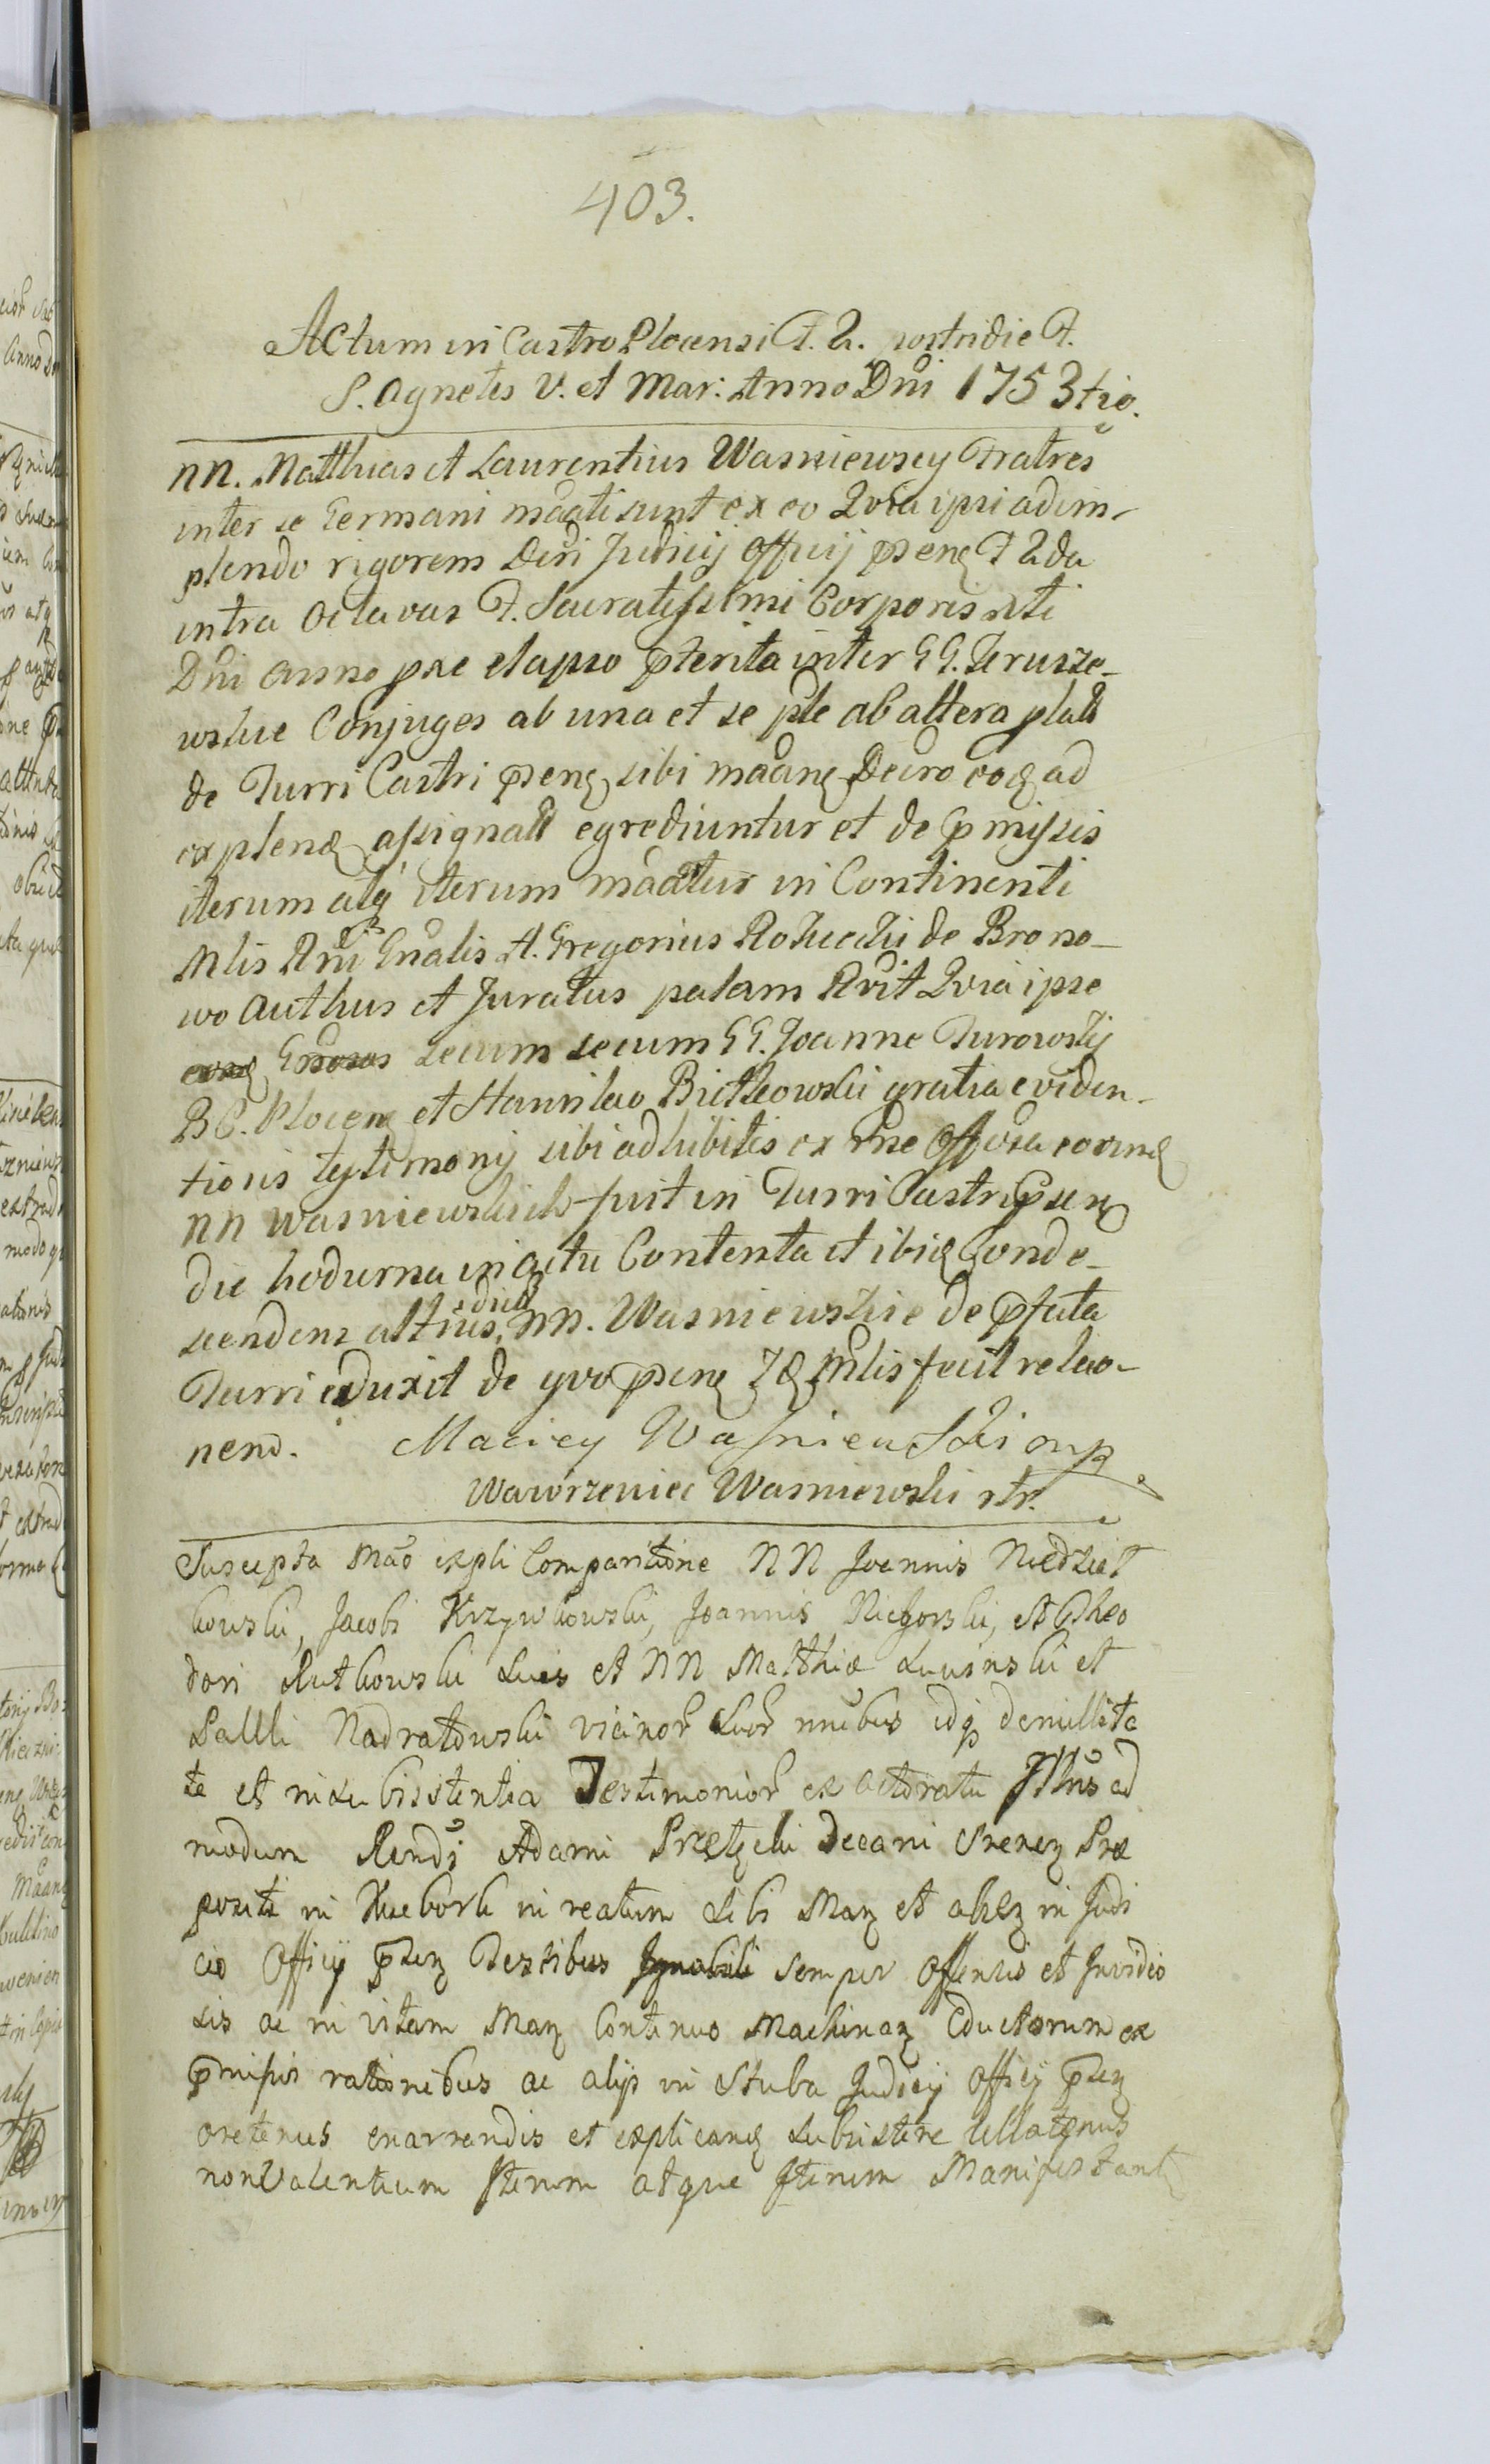 403.
Actum in Castro Plocensi F. 2. postridie F.
S. Agnetis V. et Mar: Anno Dni 1753tio.
NN. Matthias et Laurentius Wasniewscy Fratres
inter se Germani maati sunt ex eo Quia ipsi adim-
plendo rigorem Decri Judicij Officij psens F 2da
intra Octavas F. Sacratissimi Corporis Xti
Dni anno prae elapso pterita inter GG. Jerusze-
wskie Conjuges ab una et se ple ab altera plati
de Turri Castri psens sibi maans Decro eoq ad
explend assignati egrediuntur et de pmissis
iterum atq iterum maatur in Continenti
Mlis Rni Gnalis A. Gregorius Rokicki de Brono-
wo Authus et Juratus palam Rvit Quia ipse
secum secum GG. Joanne Turowski
B C. Plocen et Stanislao Bietkowski gratia eviden-
tioris testimonij sibi adhibitis ex rne Offosa eorund
NN Wasniewskich fuit in Turri Castri psen
die hodierna in actu Contenta et ibiq Conde-
scendens altius, dictos NN. Wasniewskie de pfata
Turri eduxit de quo psens Jd Mlis fecit relao-
nem. Maciey Wasniewski mp
Wawrzeniec Wasniewski
Suscepta Mao expli Comparitione NN Joannis Niedział
kowski, Jacobi Krzywkowski, Joannis Niegorski, et Theo
dori Rutkowski Suis et NN Matthiæ et
Palli Nadratowski vicinor suor nnibus idq de nullita
te et insubsistentia Testimonior ex actoratu Jllris ad
modum Rendi Adami Decani Srenen Præ
positi in in reatum sibi Man et alys in Judi
cio Officij psen Testibus semper offensis et Invidio
sis ac in vitam Man Continuo Machinan Eductorum ex
pmissis rationibus ac alijs in Stuba Judicij Officij psen
oretenus enarrandis et explicand subsistere Ullatenus
non Valentium Iterum atque Iterum Manifestant